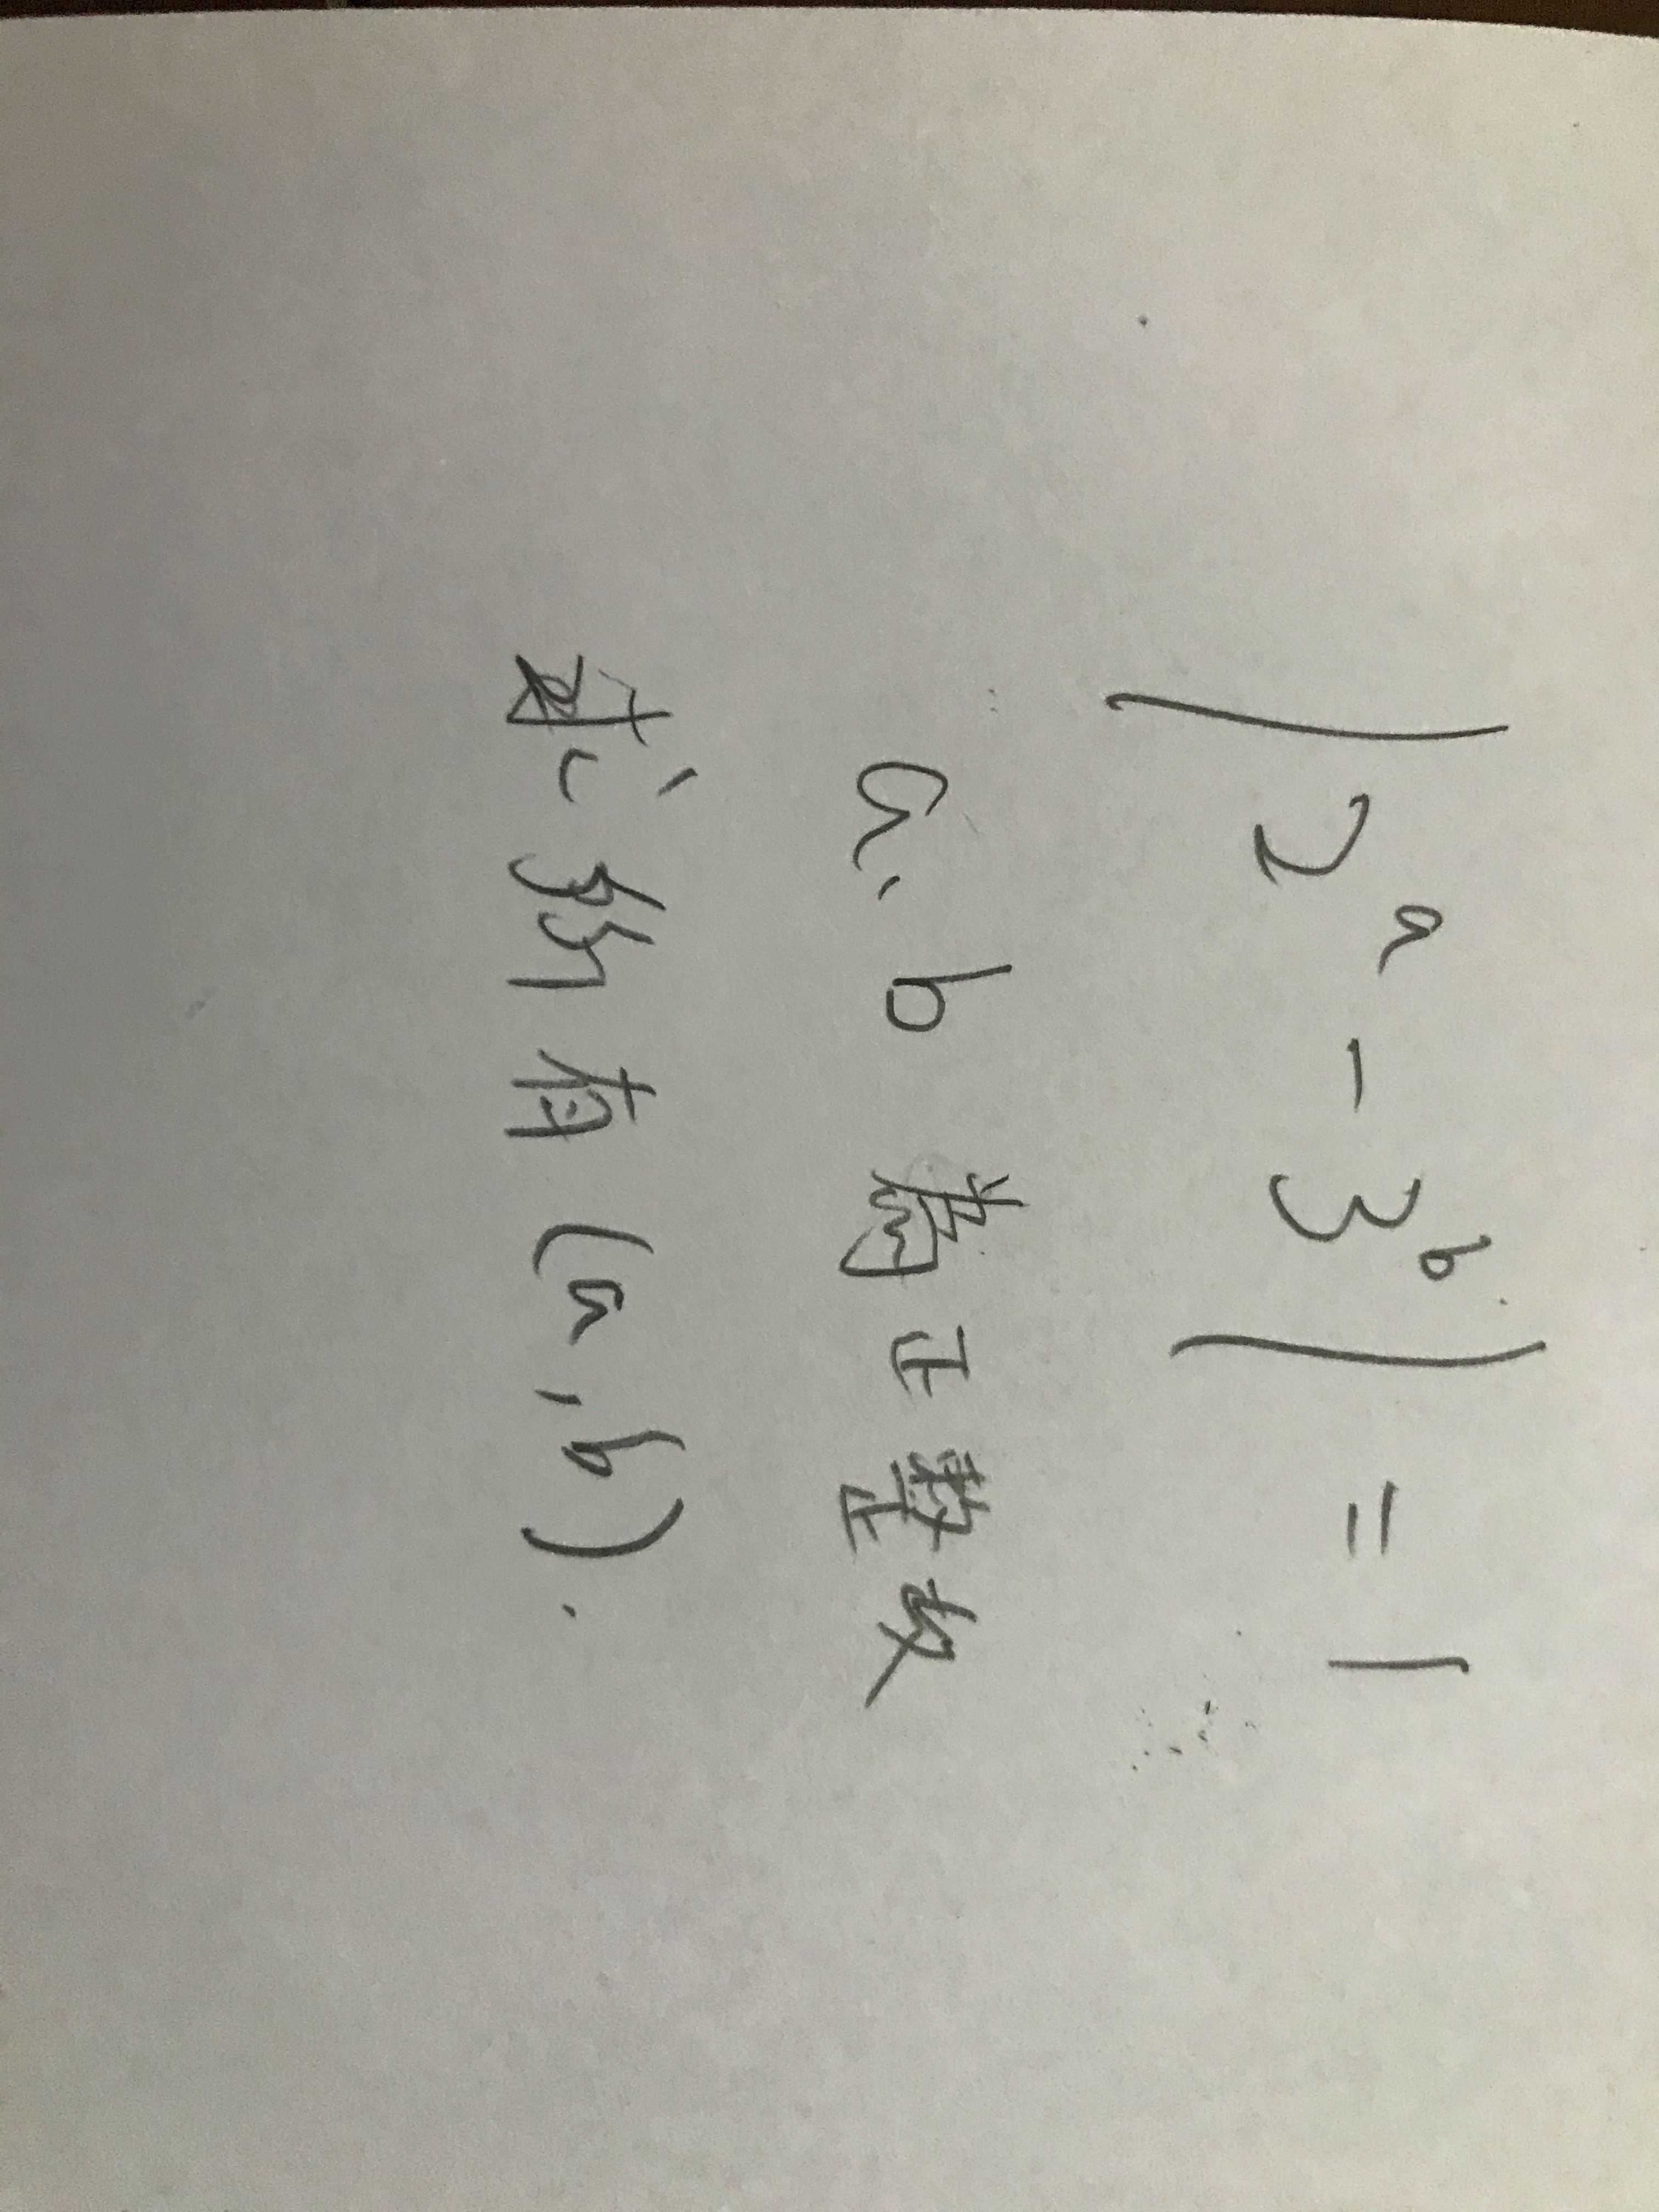 |2ᵃ - 3ᵇ| = 1
a、b 為正整数
求所有 (a, b).